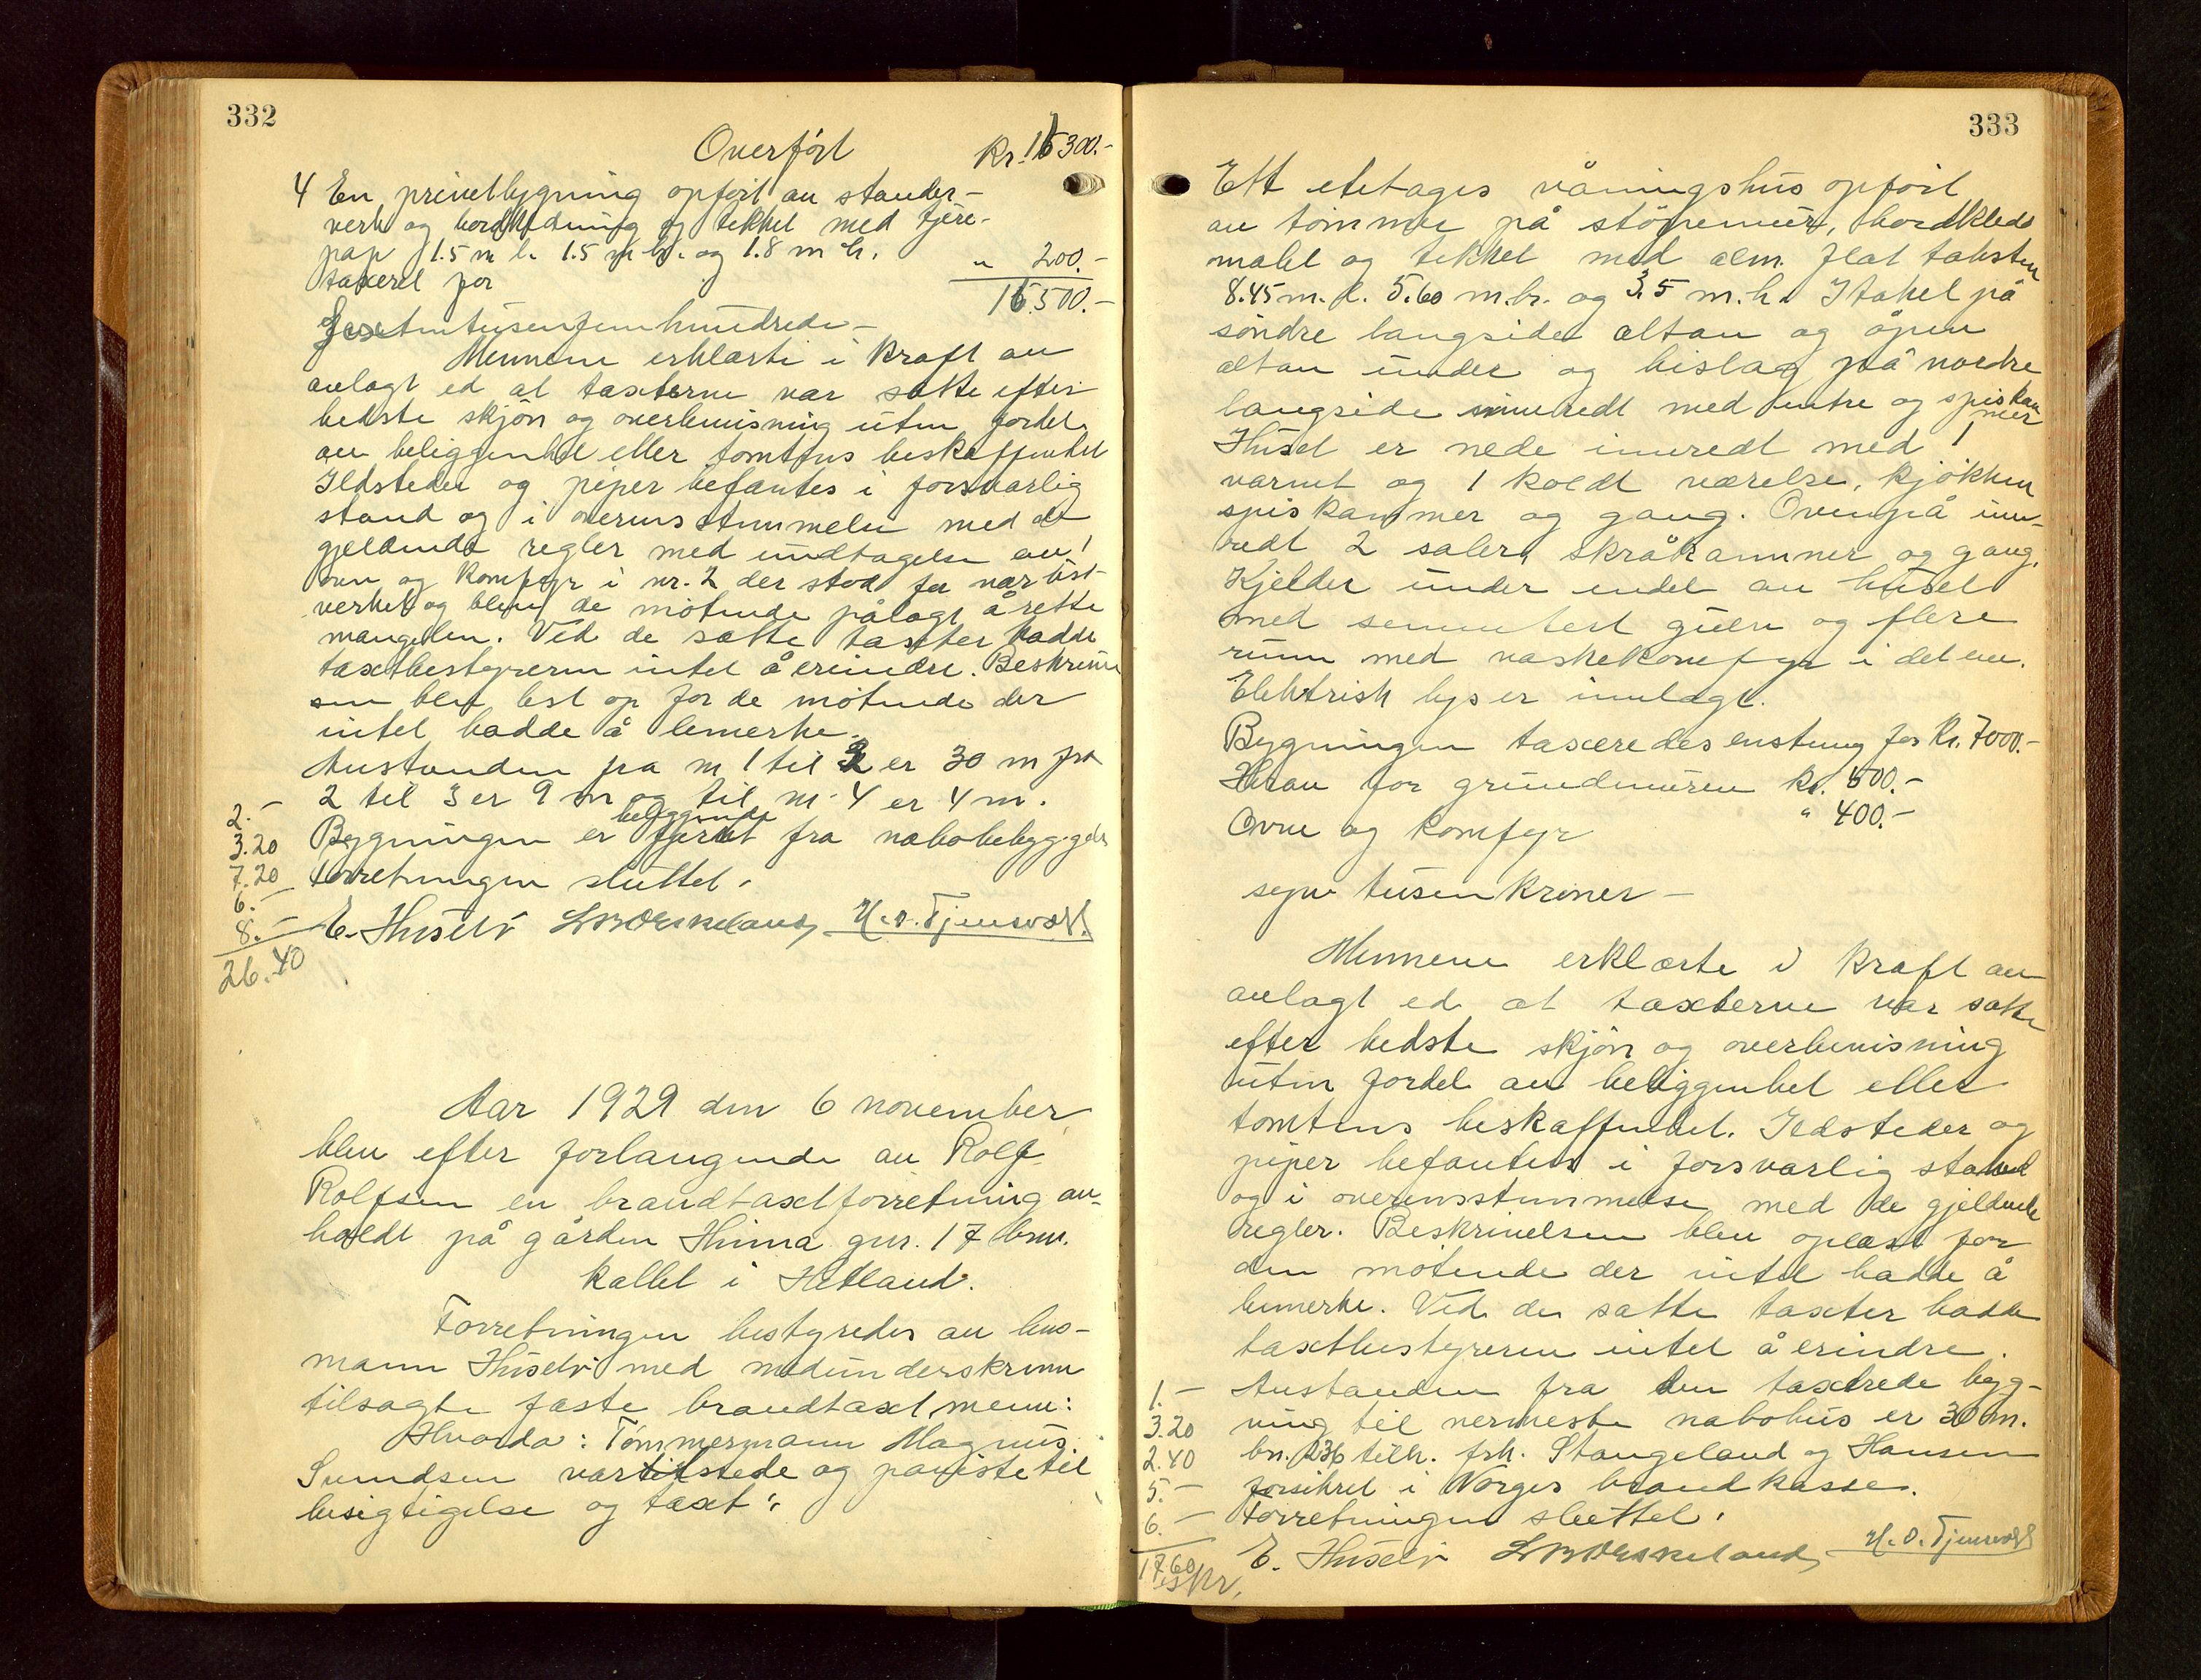 332
Overført Kr. 16300.-
4 En privetbygning opført av stender-
verk og bordkledning og tekket med tjere-
pap 1.5 m l. 1.5 m br. og 1.8 m h.
taxeret for " 200.-
16.500.-
Sextentusenfemhundrede -
Mennene erklærte i kraft av
avlagt ed at taxterne var satte efter
bedste skjøn og overbevisning uten fordel
av beliggenhet eller tomtens beskaffenhet
Ildsteder og piper befantes i forsvarlig
stand og i overensstemmelse med de
gjeldende regler med undtagelse av 1
ovn og komfyr i nr. 2 der stod for nær
verket og blev de møtende pålagt å rette
mangelen. Ved de satte taxter hadde
taxtbestyreren intet å erindre. Beskrivel
sen blev lest op for de møtende der
intet hadde å bemerke.
Avstanden fra nr 1 til 2 er 30 m fra
2 til 3 er 9 m og til nr. 4 er 4 m.
beliggende
2.-
3.20 Bygningen er fjernt fra nabobebyggels
7.20 Forretningen sluttet.
6.-
8.- E. Husebø H. O. Tjensvold.
26.40
Aar 1929 den 6 november
blev efter forlangende av Rolf
Rolfsen en brandtaxtforretning av-
holdt på gården Hinna gnr. 17 bnr.
kallet i Hetland.
Forretningen bestyredes av lens-
mann Husebø med medunderskrevne
tilsagte faste brandtaxtmenn:
Hvorda: Tømmermann Magnus
Svendsen var tilstede og paviste til
besigtigelse og taxt:
333
Ett etetages våningshus opført
av tømmer på støpemur, bordkledd
malet og tekket med alm. flat taksten
8.45 m. l. 5.60 m. br. og 3.5 m. h. I taket på
søndre langside altan og åpen
altan under og bislag på nordre
langside innredt med entre og spiskam
mer
Huset er nede innredt med 1
varmt og 1 koldt værelse, kjøkken
spiskammer og gang. Ovenpå inn-
redt 2 saler, skråkammer og gang.
Kjelder under endel av huset
med sementert gulv og flere
rum med vaskekomfyr i det ene.
Elektrisk lys er innlagt.
Bygningen taxeredes enstemmig for Kr. 7000.-
Herav for grundmuren kr. 500.-
Ovne og komfyr " 400.-
syv tusen kroner -
Mennene erklærte i kraft av
avlagt ed at taxterne var satte
efter bedste skjøn og overbevisning
uten fordel av beliggenhet eller
tomtens beskaffenhet. Ildsteder og
piper befantes i forsvarlig stand
og i overensstemmelse med de gjeldende
regler. Beskrivelsen blev oplæst for
den møtende der intet hadde å
bemerke. Ved de satte taxter hadde
taxtbestyreren intet å erindre.
1.- Avstanden fra den taxerede byg-
3.20 ning til nermeste nabohus er 30 m.
2.40 bn. 236 tilh. frk. Stangeland og Hansen
5.- forsikret i Norges brandkasse.
6.- Forretningen sluttet.
17.60 E. Husebø H. O. Tjensvold